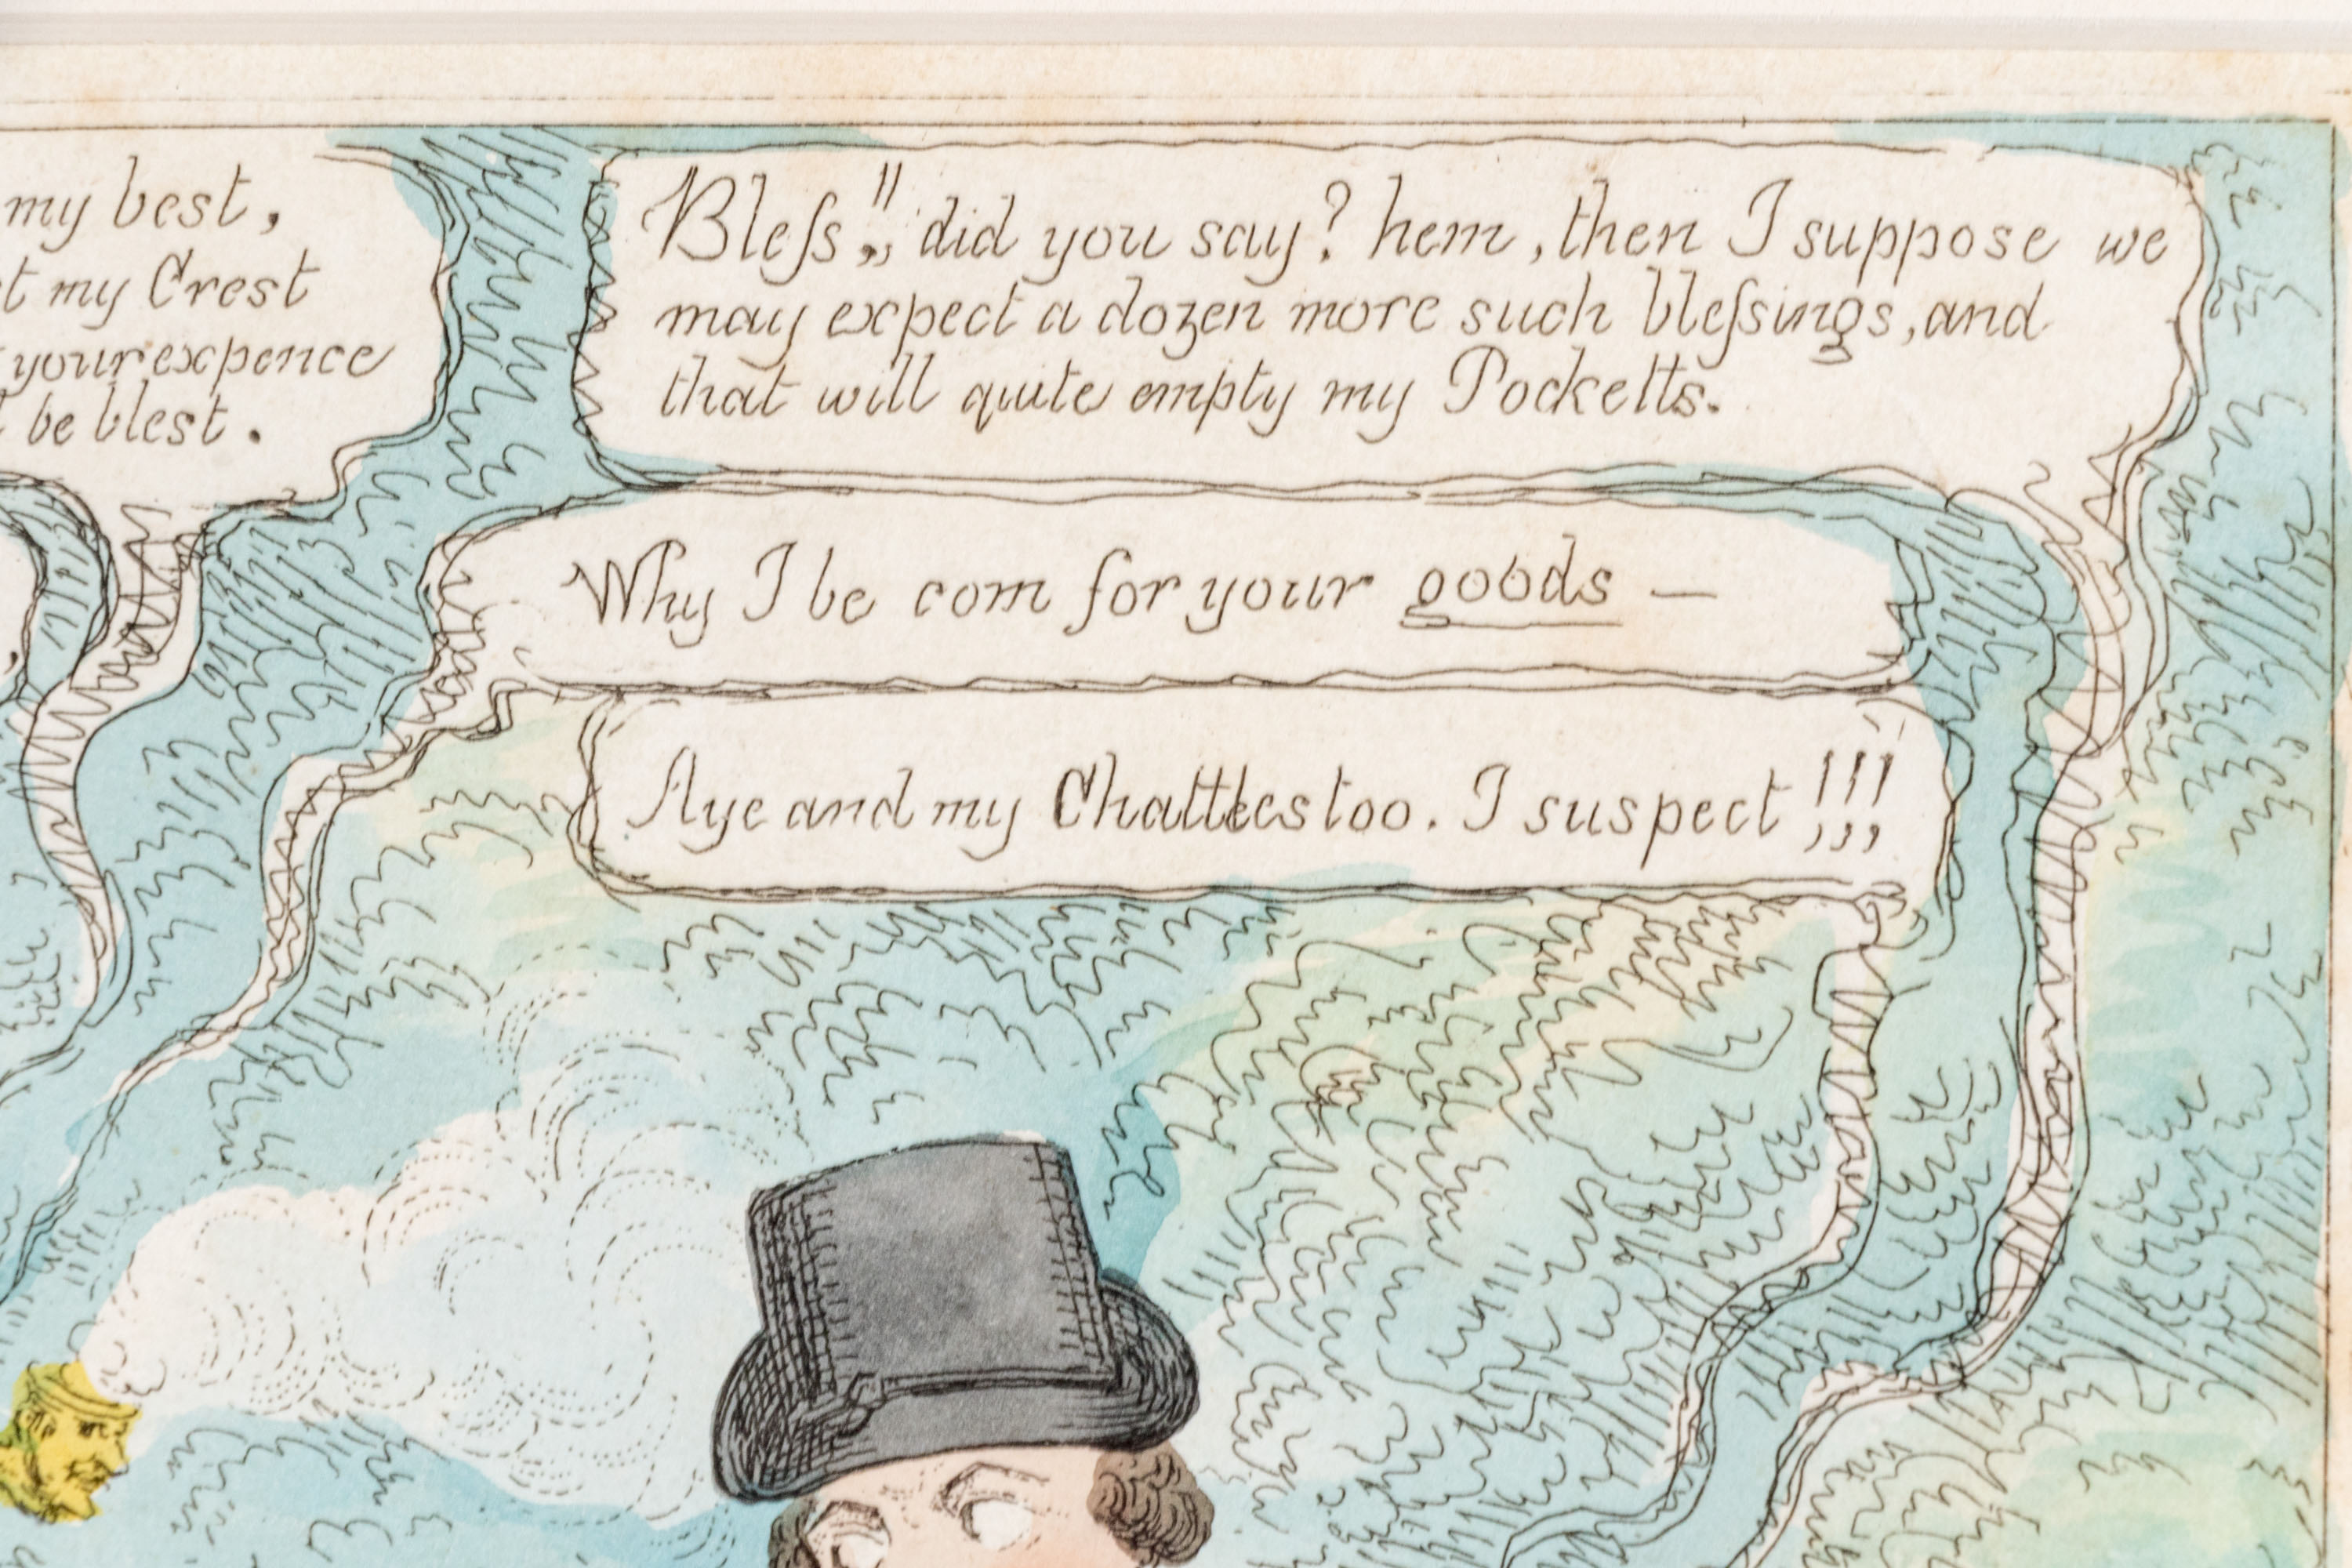 my best,
my Crest
your expence
be blest.
Bleſs!! did you say? hem, then I suppose we
may expect a dozen more such bleſsings, and
that will quite empty my Pocketts.
Why I be com for your goods —
Aye and my Chattles too. I suspect !!!